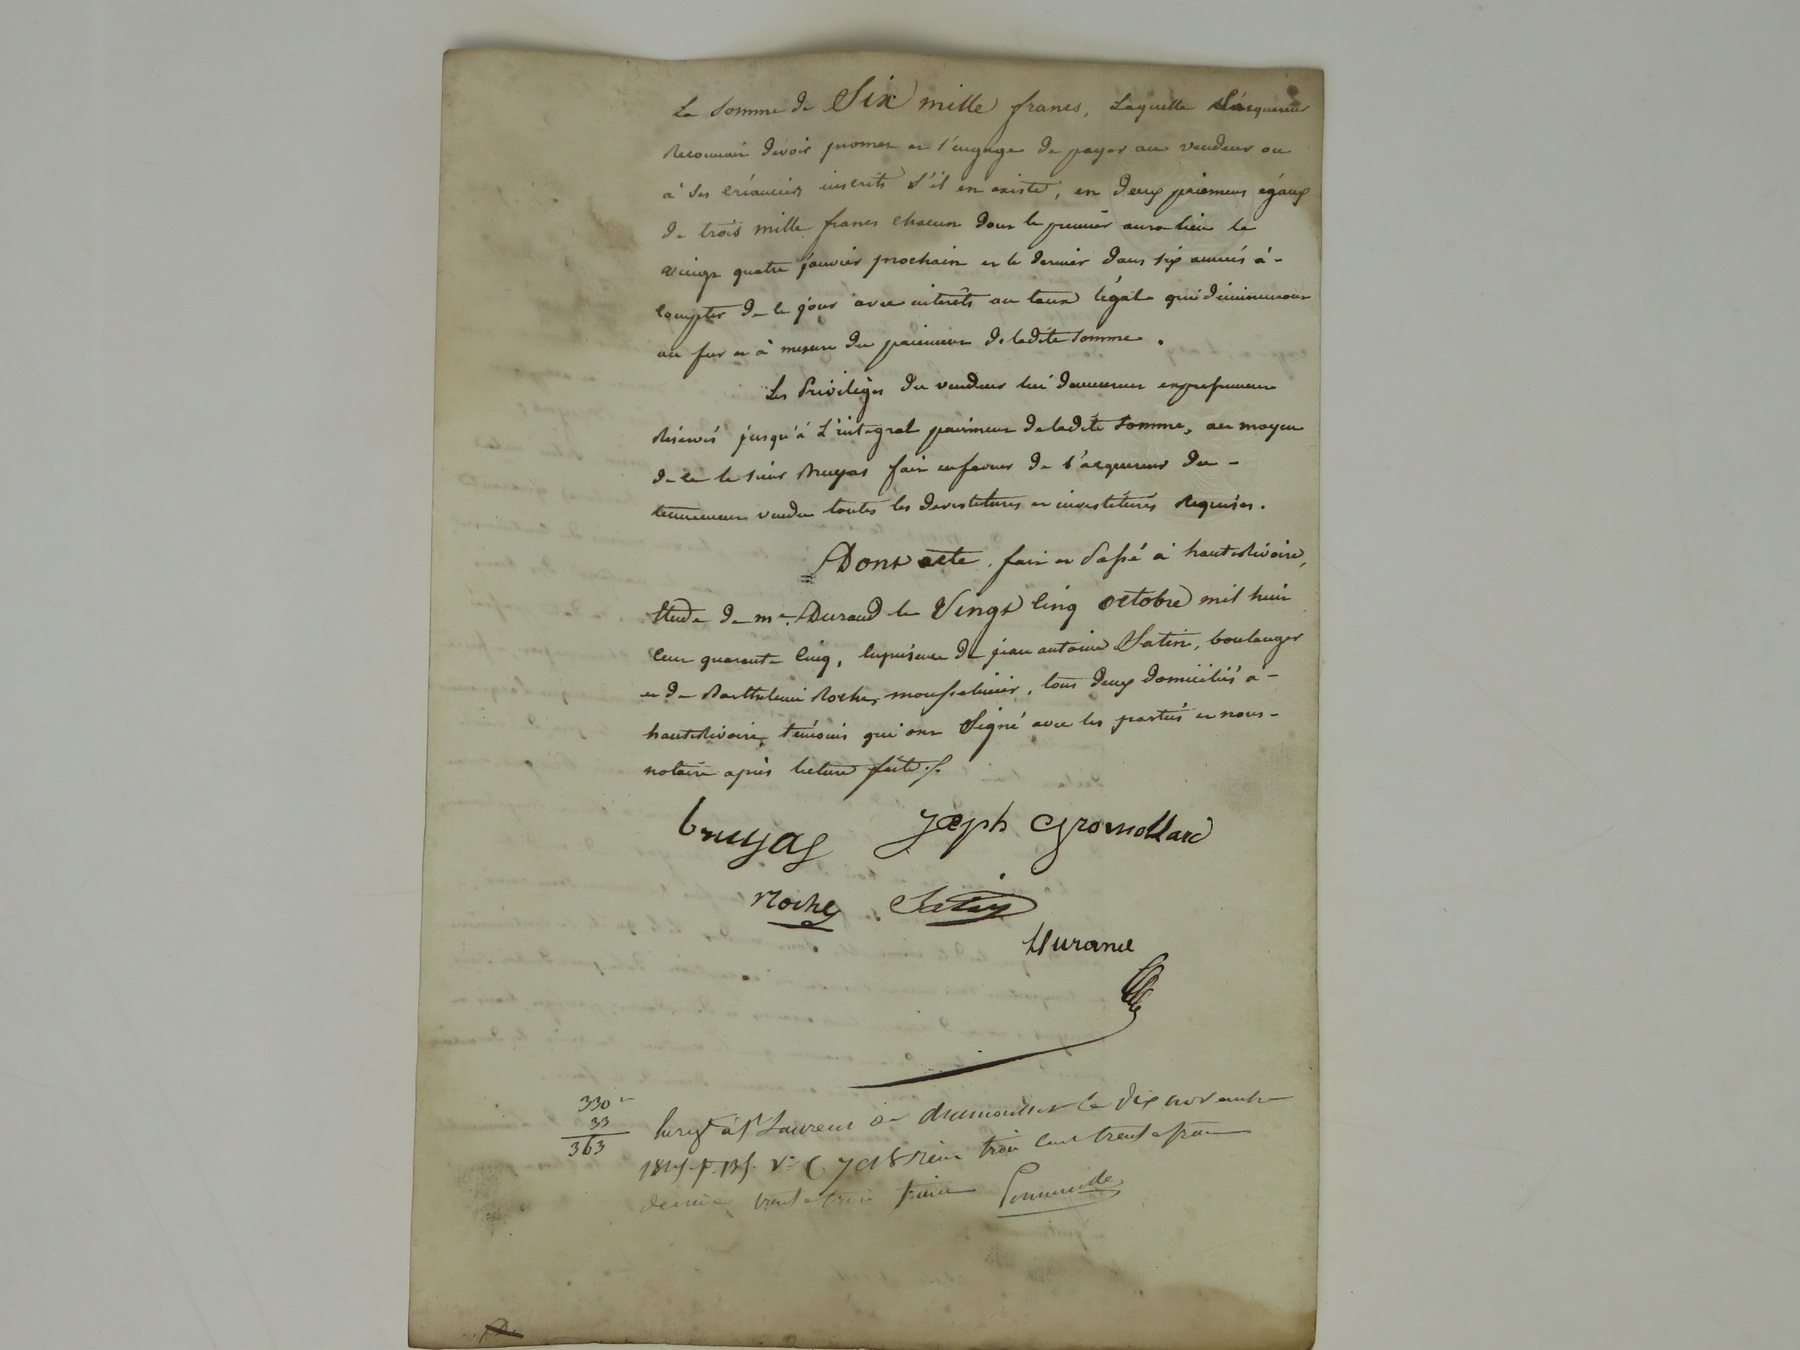 la somme de Six mille francs, laquelle l'acquereur
reconnait devoir promet et s'engage de payer au vendeur ou
à ses créanciers inscrits s'il en existe, en deux paiemens égaux
de trois mille francs chacun dont le premier aura lieu le
vingt quatre janvier prochain et le dernier dans six années à-
compter de ce jour avec intérêts au taux légal qui diminueront
au fur et à mesure du paiement de ladite somme.
Les Privilèges du vendeur lui demeurent expressement
réservés jusqu'à l'intégral paiement de ladite somme, au moyen
de ce le sieur Bruyas fait en faveur de l'acquereur du-
tenement vendu toutes les devestitures et investitures requises.
Dont acte, fait et Passé à hauterivoire,
étude de me. Durand le Vingt cinq octobre mil huit
cent quarante cinq, en présence de jean antoine Satin, boulanger
et de Barthelemi Roche, mousselinier, tous deux domiciliés à-
hauterivoire, témoins qui ont Signé avec les parties et nous-
notaire après lecture faite./.
bruyas Joseph gromollard
Roche Satin
Durand
330
33
363
Enregt à St Laurent de chamousset le dix novembre
1845 f. 135 v. C 7 et 8 reçu trois cent trente francs
décime trente trois francs